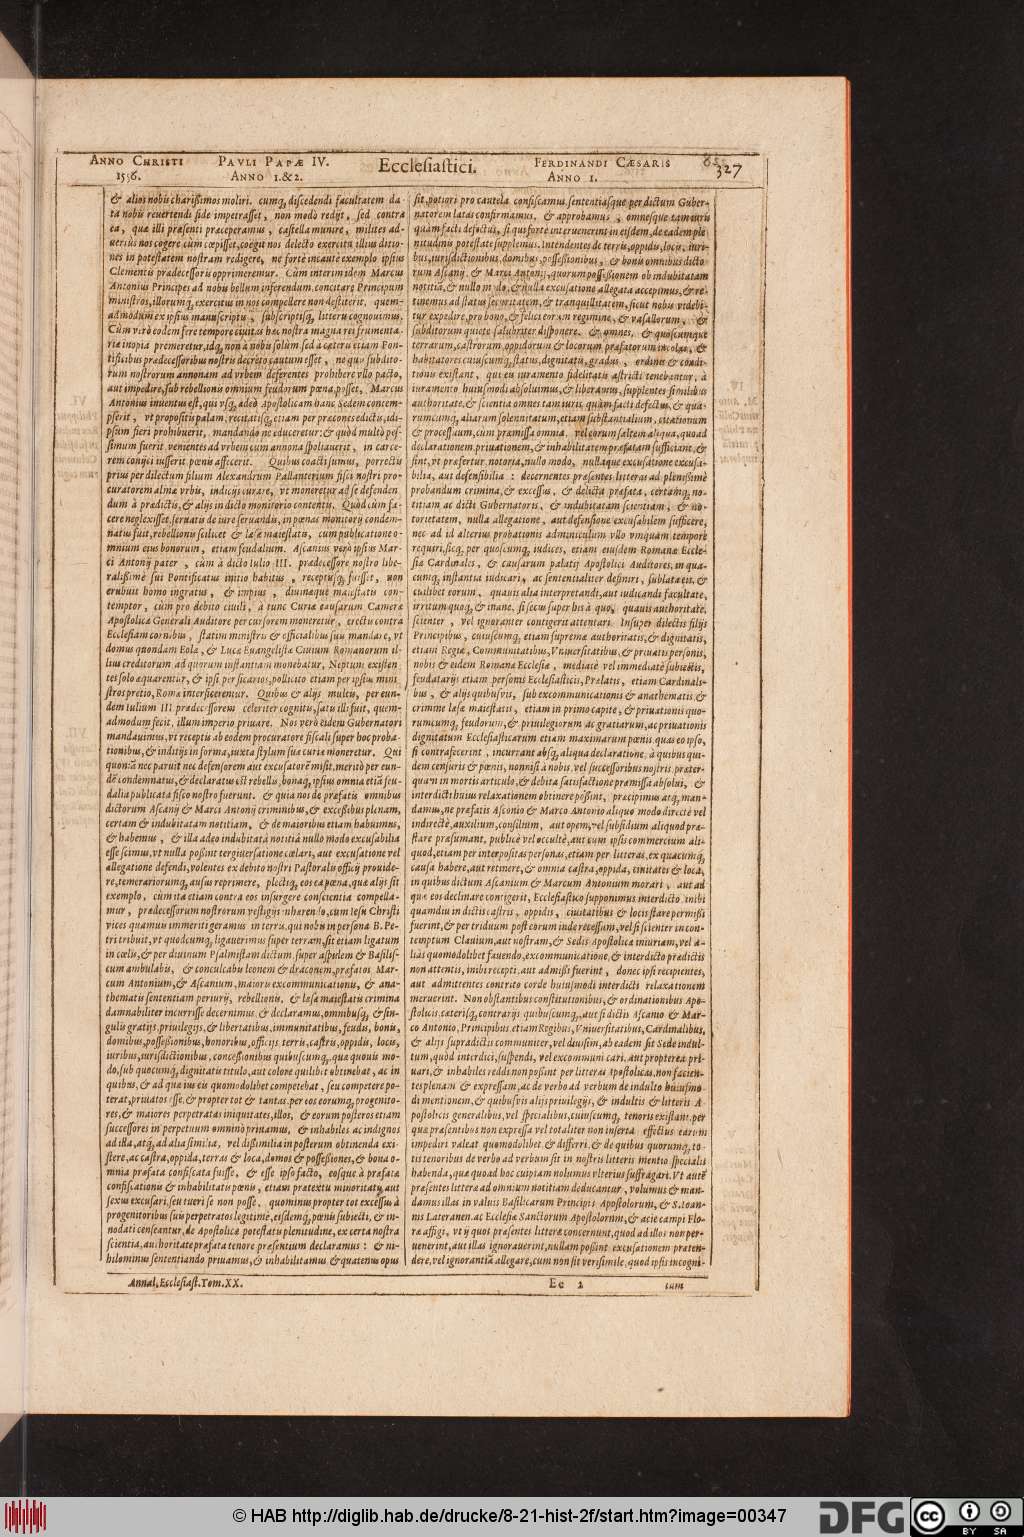 ANNO CHRISTI PAVLI PAPÆ IV. Ecclesiastici. FERDINANDI CÆSARIS
1556. ANNO 1.&2. ANNO 1. 327
& alios nobis charißimos moliri. cumq; discedendi facultatem da-
ta nobis revertendi fide impetrasset, non modò redijt, sed contra
ea, quæ illi præsenti præceperamus, castella munire, milites ad-
uersus nos cogere cùm cœpisset, coëgit nos delecto exercitu illius ditio-
nes in potestatem nostram redigere, ne fortè incautè exemplo ipsius
Clementis prædecessoris opprimeremur. Cùm interim idem Marcus
Antonius Principes ad nobis bellum inferendum concitare Principum
ministros, illorumq; exercitus in nos compellere non destiterit, quem-
admodum ex ipsius manuscriptis, subscriptisq; litteris cognouimus.
Cùm verò eodem ferè tempore ciuitas hæc nostra magna rei frumenta-
riæ inopia premeretur, idq; non à nobis solùm sed à cæteris etiam Pon-
tificibus prædecessoribus nostris decreto cautum esset, ne quis subdito-
rum nostrorum annonam ad vrbem deferentes prohibere vllo pacto,
aut impedire, sub rebellionis omnium feudorum pœna, posset, Marcus
Antonius inuentus est, qui vsq; adeò Apostolicam hanc Sedem contem-
pserit, vt propositis palam, recitatisq; etiam per præcones edictis, idi-
psum fieri prohibuerit, mandando ne educeretur: & quòd multò pes-
simum fuerit venientes ad vrbem cum annona spoliauerit, in carce-
rem conijci iusserit pœnis affecerit. Quibus coacti sumus, porrectis
prius per dilectum filium Alexandrum Pallanterium fisci nostri pro-
curatorem almæ vrbis, indicijs curare, vt moneretur ad se defenden
dum à prædictis, & alijs in dicto monitorio contentis. Quòd cùm fa-
cere neglexisset, seruatis de iure seruandis, in pœnas monitorij condem-
natus fuit, rebellionis scilicet & læsæ maiestatis, cum publicatione o-
mnium eius bonorum, etiam feudalium. Ascanius verò ipsius Mar-
ci Antonij pater, cùm à dicto Iulio III. prædecessore nostro libe-
ralißimè sui Pontificatus initio habitus, receptusq; fuisset, non
erubuit homo ingratus, & impius, diuinæque maiestatis con-
temptor, cùm pro debito ciuili, à tunc Curiæ causarum Cameræ
Apostolicæ Generali Auditore per cursorem moneretur, erectis contra
Ecclesiam cornibus, statim ministris & officialibus suis mandare, vt
domus quondam Eolæ, & Lucæ Euangelistæ Ciuium Romanorum il-
lius creditorum ad quorum instantiam monebatur, Neptuni existen
tes solo æquarentur, & ipsi per sicarios, pollicito etiam per ipsius mini
stros pretio, Romæ interficerentur. Quibus & alijs multis, per eun-
dem Iulium III prædecessorem celeriter cognitis, satis illi fuit, quem-
admodum fecit, illum imperio priuare. Nos verò eidem Gubernatori
mandauimus, vt receptis ab eodem procuratore fiscali super hoc proba-
tionibus, & inditijs in forma, iuxta stylum suæ curiæ moneretur. Qui
quoniã nec paruit nec defensorem aut excusatorẽ misit, meritò per eun-
dẽ condemnatus, & declaratus est rebellis, bonaq; ipsius omnia etiã feu-
dalia publicata fisco nostro fuerunt. & quia nos de præfatis omnibus
dictorum Ascanij & Marci Antonij criminibus, & exceßibus plenam,
certam & indubitatam notitiam, & de maioribus etiam habuimus,
& habemus, & illa adeo indubitata notitia nullo modo excusabilia
esse scimus, vt nulla poßint tergiuersatione cælari, aut excusatione vel
allegatione defendi, volentes ex debito nostri Pastoralis officij prouide-
re, temerariorumq; ausus reprimere, plectiq; eos ea pœna, quæ alijs sit
exemplo, cùm ita etiam contra eos insurgere conscientia compella-
mur, prædecessorum nostrorum vestigijs inhærendo, cum Iesu Christi
vices quamuis immeriti geramus in terris, qui nobis in persona B. Pe-
tri tribuit, vt quodcumq; ligauerimus super terram, sit etiam ligatum
in cœlis, & per diuinum Psalmistam dictum, super aspidem & Basilis-
cum ambulabis, & conculcabis leonem & draconem, præfatos Mar-
cum Antonium, & Ascanium, maioris excommunicationis, & ana-
thematis sententiam periurij, rebellionis, & læsæ maiestatis crimina
damnabiliter incurrisse decernimus & declaramus, omnibusq; & sin-
gulis gratijs, priuilegijs, & libertatibus, immunitatibus, feudis, bonis,
domibus, poßeßionibus, honoribus, officijs, terris, castris, oppidis, locis,
iuribus, iurisdictionibus, conceßionibus quibuscumq; quæ quouis mo-
do, sub quocumq; dignitatis titulo, aut colore quilibet obtinebat, ac in
quibus, & ad quæ ius eis quomodolibet competebat, seu competere po-
terat, priuatos esse, & propter tot & tantas, per eos eorumq; progenito-
res, & maiores perpetratas iniquitates, illos, & eorum posteros etiam
successores in perpetuum omninò priuamus, & inhabiles ac indignos
ad illa, atq; ad alia similia, vel dißimilia in posterum obtinenda exi-
stere, ac castra, oppida, terras & loca, domos & poßeßiones, & bona o-
mnia præfata confiscata fuisse, & esse ipso facto, eosque à præfata
confiscationis & inhabilitatis pœna, etiam prætextu minoritatis, aut
sexus excusari, seu tueri se non posse, quominus propter tot excessus à
progenitoribus suis perpetratos legitimè, eisdemq; pœnis subiecti, & in-
nodati censeantur, de Apostolicæ potestatis plenitudine, ex certa nostra
scientia, authoritate præfata tenore præsentium declaramus: & ni-
hilominus sententiando priuamus, & inhabilitamus & quatenus opus
sit, potiori pro cautela confiscamus, sententiasque per dictum Guber-
natorem latas confirmamus, & approbamus; omnesque tam iuris
quàm facti defectus, si qui fortè interuenerint in eisdem, de eadem ple
nitudinis potestate supplemus. Intendentes de terris, oppidis, locis, iuri-
bus, iurisdictionibus, domibus, poßeßionibus, & bonis omnibus dicto
rum Ascanij & Marci Antonij, quorum poßeßionem ob indubitatam
notitiã, & nullo modo, & nulla excusatione allegata accepimus, & re-
tinemus ad status securitatem, & tranquillitatem, sicut nobis videbi-
tur expedire, pro bono, & felici eorum regimine, & vasallorum, &
subditorum quiete salubriter disponere. & omnes, & quoscumque
terrarum, castrorum, oppidorum & locorum præfatorum incolas, &
habitatores cuiuscumq; status, dignitatis, gradus, ordinis & condi-
tionis existant, qui eis iuramento fidelitatis astricti tenebantur, à
iuramento huiusmodi absoluimus, & liberamus, supplentes similibus
authoritate, & scientia omnes tam iuris, quàm facti defectus, & quo-
rumcumq; aliarum solennitatum, etiam substantialium, citationum
& processuum, cùm præmissa omnia, vel eorum saltem aliqua, quoad
declarationem priuationem, & inhabilitatem præfatam sufficiant, &
sint, vt præfertur, notoria, nullo modo, nullaque excusatione excusa-
bilia, aut defensibilia: decernentes præsentes litteras ad plenißimè
probandum crimina, & excessus, & delicta præfata, certamq; no-
titiam ac dicti Gubernatoris, & indubitatam scientiam, & no-
torietatem, nulla allegatione, aut defensione excusabilem sufficere,
nec ad id alterius probationis adminiculum vllo vmquam tempore
requiri, sicq; per quoscumq; iudices, etiam eiusdem Romanæ Eccle-
siæ Cardinales, & causarum palatij Apostolici Auditores, in qua-
cumq; instantia iudicari, ac sententialiter definiri, sublata eis, &
cuilibet eorum, quauis alia interpretandi, aut iudicandi facultate,
irritum quoq; & inane, si secus super his à quoquam quauis authoritate,
scienter, vel ignoranter contigerit attentari. Insuper dilectis filijs
Principibus, cuiuscumq; etiam supremæ authoritatis, & dignitatis,
etiam Regiæ, Communitatibus, Vniuersitatibus, & priuatis personis,
nobis & eidem Romanæ Ecclesiæ, mediatè vel immediatè subiectis,
feudatarijs etiam personis Ecclesiasticis, Prælatis, etiam Cardinali-
bus, & alijs quibusuis, sub excommunicationis & anathematis, &
crimine læsæ maiestatis, etiam in primo capite, & priuationis quo-
rumcumq; feudorum, & priuilegiorum ac gratiarum, ac priuationis
dignitatum Ecclesiasticarum etiam maximarum pœnis quas eo ipso,
si contrafecerint, incurrant absq; aliqua declaratione, à quibus qui-
dem censuris & pœnis, nonnisi à nobis, vel successoribus nostris, præter-
quàm in mortis articulo, & debita satisfactione præmissa absolui, &
interdicti huius relaxationem obtinere poßint, præcipimus atq; man-
damus, ne præfatis Ascanio & Marco Antonio aliquo modo directè vel
indirectè, auxilium, consilium, aut opem, vel subsidium aliquod præ-
stare præsumant, publicè vel occultè, aut cum ipsis commercium ali-
quod, etiam per interpositas personas, etiam per litteras, ex quacumq;
causa habere, aut retinere, & omnia castra, oppida, ciuitates & loca,
in quibus dictum Ascanium & Marcum Antonium morari, aut ad
quæ eos declinare contigerit, Ecclesiastico supponimus interdicto, inibi
quamdiu in dictis castris, oppidis, ciuitatibus & locis stare permißi
fuerint, & per triduum post eorum inde recessum, vel si scienter in con-
temptum Clauium, aut nostram, & Sedis Apostolicæ iniuriam, vel a-
liàs quomodolibet fauendo, excommunicatione, & interdicto prædictis
non attentis, inibi recepti, aut admißi fuerint, donec ipsi recipientes,
aut admittentes contrito corde huiusmodi interdicti relaxationem
meruerint. Non obstantibus constitutionibus, & ordinationibus Apo-
stolicis, cæterisq; contrarijs quibuscumq; aut si dictis Ascanio & Mar-
co Antonio, Principibus etiam Regibus, Vniuersitatibus, Cardinalibus,
& alijs supradictis communiter, vel diuisim, ab eadem sit Sede indul-
tum, quòd interdici, suspendi, vel excommunicari, aut propterea pri-
uari, & inhabiles reddi non poßint per litteras Apostolicas, non facien-
tes plenam & expressam, ac de verbo ad verbum de indulto huiusmo-
di mentionem, & quibusuis alijs priuilegijs, & indultis & litteris A-
postolicis generalibus, vel specialibus, cuiuscumq; tenoris existant, per
quæ præsentibus non expressa vel totaliter non inserta effectus earum
impediri valeat quomodolibet, & differri, & de quibus quorumq; to-
tis tenoribus de verbo ad verbum sit in nostris litteris mentio specialis
habenda, quæ quoad hoc cuipiam nolumus vlterius suffragari. Vt autẽ
præsentes litteræ ad omnium notitiam deducantur, volumus & man-
damus illas in valuis Basilicarum Principis Apostolorum, & S. Ioan-
nis Lateranen. ac Ecclesiæ Sanctorum Apostolorum, & acie campi Flo-
ræ affigi, vt ij quos præsentes litteræ concernunt, quod ad illos non per-
uenerint, aut illas ignorauerint, nullam poßint excusationem præten-
dere, vel ignorantiã allegare, cum non sit verisimile, quod ipsis incogni-
Annal. Ecclesiast. Tom. XX. Ee 2 tum
© HAB http://diglib.hab.de/drucke/8-21-hist-2f/start.htm?image=00347
DFG
cc BY SA